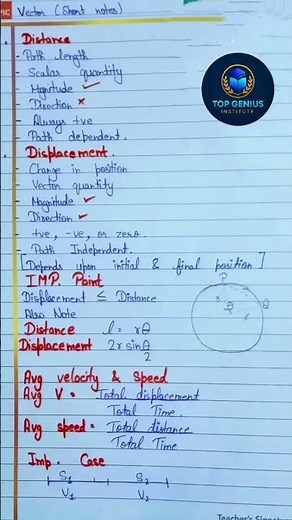 Vector (Short notes)
TOP GENIUS
INSTITUTE
• Distance
- Path length
- Scalar quantity
- Magnitude ✓
- Direction ×
- Always +ve
- Path dependent.
• Displacement.
- Change in position
- Vector quantity
- Magnitude ✓
- Direction ✓
- +ve, -ve, or zero.
- Path Independent.
[Depends upon initial & final position]
IMP. Point
Displacement ≤ Distance
Also Note
Distance l = rθ
Displacement 2r sin θ/2
P
r
θ
r
Q
Avg velocity & Speed
Avg V = Total displacement
Total Time.
Avg speed = Total distance
Total Time
Imp. Case
S1 S2
V1 V2
Teacher's Signature